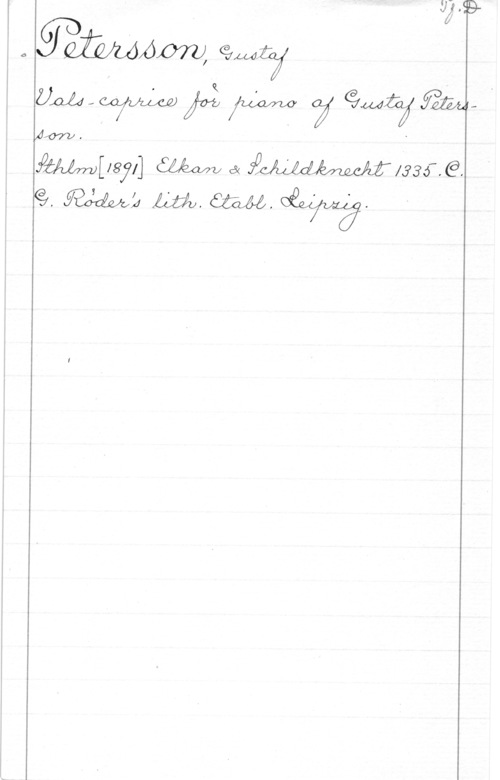 Tj. D
Petersson, Gustaf
Vals-caprice för piano af Gustaf Peters-
son.
Sthlm [1891] Elkan & Schildknecht 1335. C.
G. Röder's lith. Etabl. Leipzig.